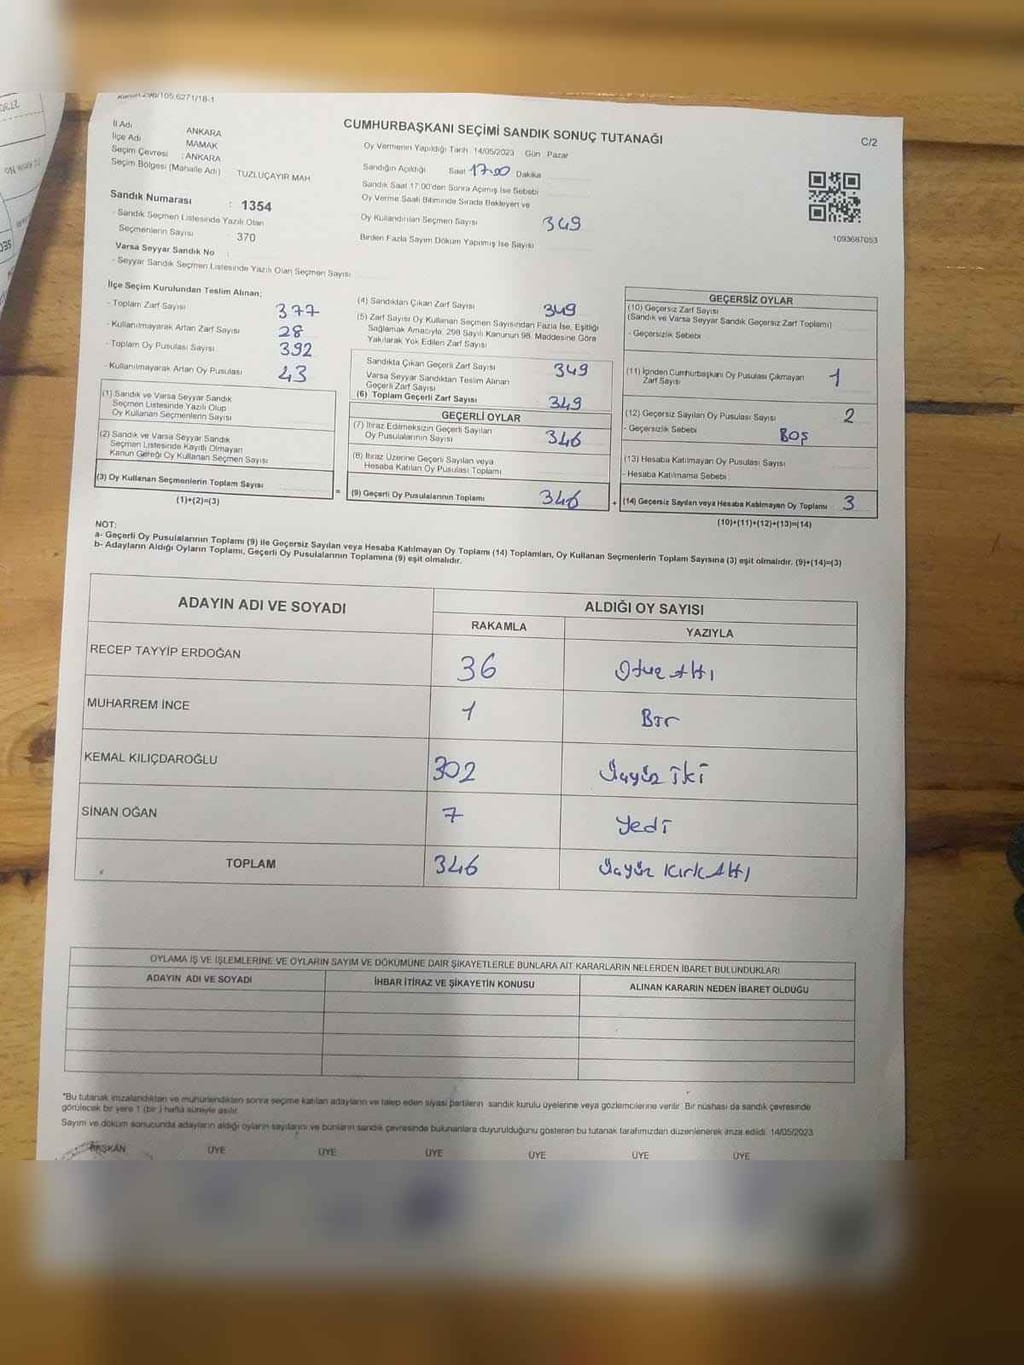 CUMHURBAŞKANI SEÇİMİ SANDIK SONUÇ TUTANAĞI
C/2
İl Adı
ANKARA
İlçe Adı
MAMAK
Seçim Çevresi : ANKARA
Seçim Bölgesi (Mahalle Adı) TUZLUÇAYIR MAH
Sandık Numarası : 1354
- Sandık Seçmen Listesinde Yazılı Olan
Seçmenlerin Sayısı : 370
Varsa Seyyar Sandık No :
- Seyyar Sandık Seçmen Listesinde Yazılı Olan Seçmen Sayısı
Oy Vermenin Yapıldığı Tarih : 14/05/2023 Gün : Pazar
Sandığın Açıldığı Saat 17:00 Dakika
Sandık Saat 17:00'den Sonra Açılmış İse Sebebi
Oy Verme Saati Bitiminde Sırada Bekleyen ve
Oy Kullandırılan Seçmen Sayısı 349
Birden Fazla Sayım Döküm Yapılmış İse Sayısı
1093687053
İlçe Seçim Kurulundan Teslim Alınan;
- Toplam Zarf Sayısı 377
- Kullanılmayarak Artan Zarf Sayısı 28
- Toplam Oy Pusulası Sayısı 392
- Kullanılmayarak Artan Oy Pusulası 43
(1) Sandık ve Varsa Seyyar Sandık
Seçmen Listesinde Yazılı Olup
Oy Kullanan Seçmenlerin Sayısı
(2) Sandık ve Varsa Seyyar Sandık
Seçmen Listesinde Kayıtlı Olmayan
Kanun Gereği Oy Kullanan Seçmen Sayısı
(3) Oy Kullanan Seçmenlerin Toplam Sayısı
(1)+(2)=(3)
(4) Sandıktan Çıkan Zarf Sayısı 349
(5) Zarf Sayısı Oy Kullanan Seçmen Sayısından Fazla İse, Eşitliği
Sağlamak Amacıyla, 298 Sayılı Kanunun 98. Maddesine Göre
Yakılarak Yok Edilen Zarf Sayısı
Sandıkta Çıkan Geçerli Zarf Sayısı 349
Varsa Seyyar Sandıktan Teslim Alınan
Geçerli Zarf Sayısı
(6) Toplam Geçerli Zarf Sayısı 349
GEÇERLİ OYLAR
(7) İtiraz Edilmeksizin Geçerli Sayılan
Oy Pusulalarının Sayısı 346
(8) İtiraz Üzerine Geçerli Sayılan veya
Hesaba Katılan Oy Pusulası Toplamı
= (9) Geçerli Oy Pusulalarının Toplamı 346
GEÇERSİZ OYLAR
(10) Geçersiz Zarf Sayısı
(Sandık ve Varsa Seyyar Sandık Geçersiz Zarf Toplamı)
- Geçersizlik Sebebi
(11) İçinden Cumhurbaşkanı Oy Pusulası Çıkmayan
Zarf Sayısı 1
(12) Geçersiz Sayılan Oy Pusulası Sayısı 2
- Geçersizlik Sebebi BOŞ
(13) Hesaba Katılmayan Oy Pusulası Sayısı
- Hesaba Katılmama Sebebi
+ (14) Geçersiz Sayılan veya Hesaba Katılmayan Oy Toplamı 3
(10)+(11)+(12)+(13)=(14)
NOT:
a- Geçerli Oy Pusulalarının Toplamı (9) ile Geçersiz Sayılan veya Hesaba Katılmayan Oy Toplamı (14) Toplamları, Oy Kullanan Seçmenlerin Toplam Sayısına (3) eşit olmalıdır. (9)+(14)=(3)
b- Adayların Aldığı Oyların Toplamı, Geçerli Oy Pusulalarının Toplamına (9) eşit olmalıdır.
ADAYIN ADI VE SOYADI
ALDIĞI OY SAYISI
RAKAMLA YAZIYLA
RECEP TAYYİP ERDOĞAN 36 Otuz Altı
MUHARREM İNCE 1 Bir
KEMAL KILIÇDAROĞLU 302 Üçyüz iki
SİNAN OĞAN 7 Yedi
TOPLAM 346 Üçyüz Kırk Altı
OYLAMA İŞ VE İŞLEMLERİNE VE OYLARIN SAYIM VE DÖKÜMÜNE DAİR ŞİKAYETLERLE BUNLARA AİT KARARLARIN NELERDEN İBARET BULUNDUKLARI
ADAYIN ADI VE SOYADI
İHBAR İTİRAZ VE ŞİKAYETİN KONUSU
ALINAN KARARIN NEDEN İBARET OLDUĞU
*Bu tutanak imzalandıktan ve mühürlendikten sonra seçime katılan adayların ve talep eden siyasi partilerin sandık kurulu üyelerine veya gözlemcilerine verilir. Bir nüshası da sandık çevresinde
görülecek bir yere 1 (bir) hafta süreyle asılır.
Sayım ve döküm sonucunda adayların aldığı oyların sayılarını ve bunların sandık çevresinde bulunanlara duyurulduğunu gösteren bu tutanak tarafımızdan düzenlenerek imza edildi. 14/05/2023
BAŞKAN ÜYE ÜYE ÜYE ÜYE ÜYE ÜYE